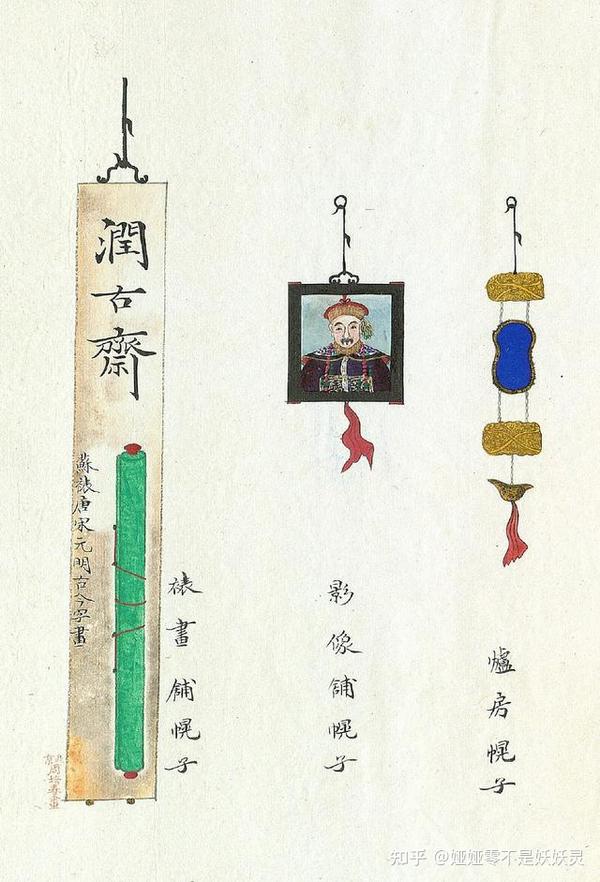 潤古齋
蘇裱唐宋元明古今字畫
裱畫舖幌子
影像舖幌子
爐房幌子
北京周培春畫
知乎 @娅娅零不是妖妖灵